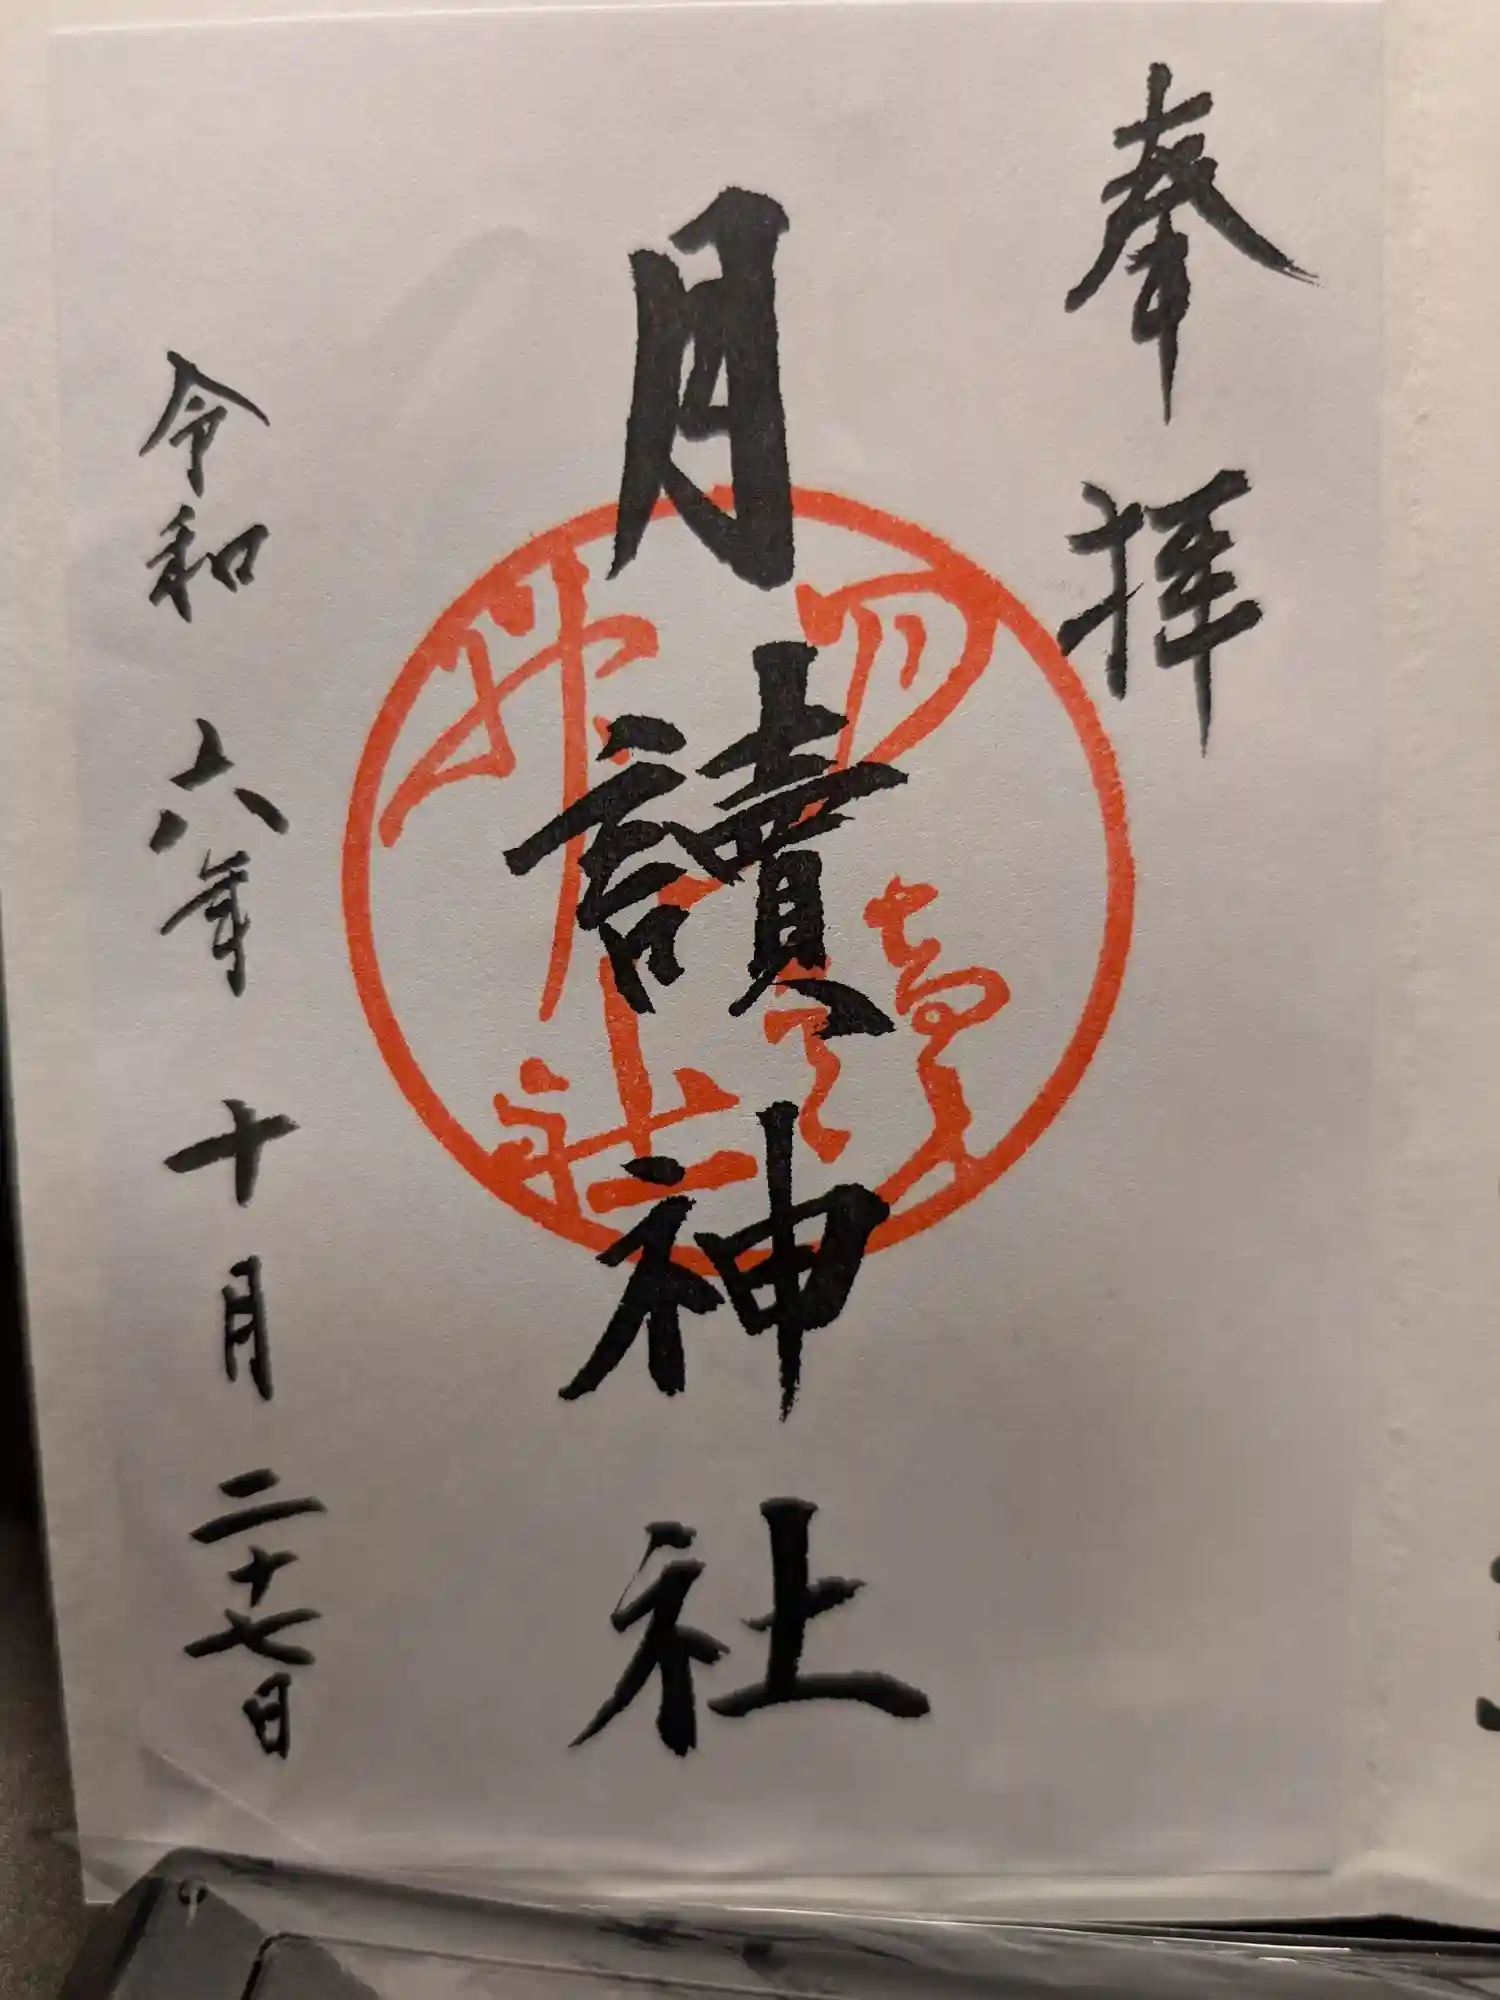 奉拝
月讀神社
月讀神社
令和六年十月二十七日